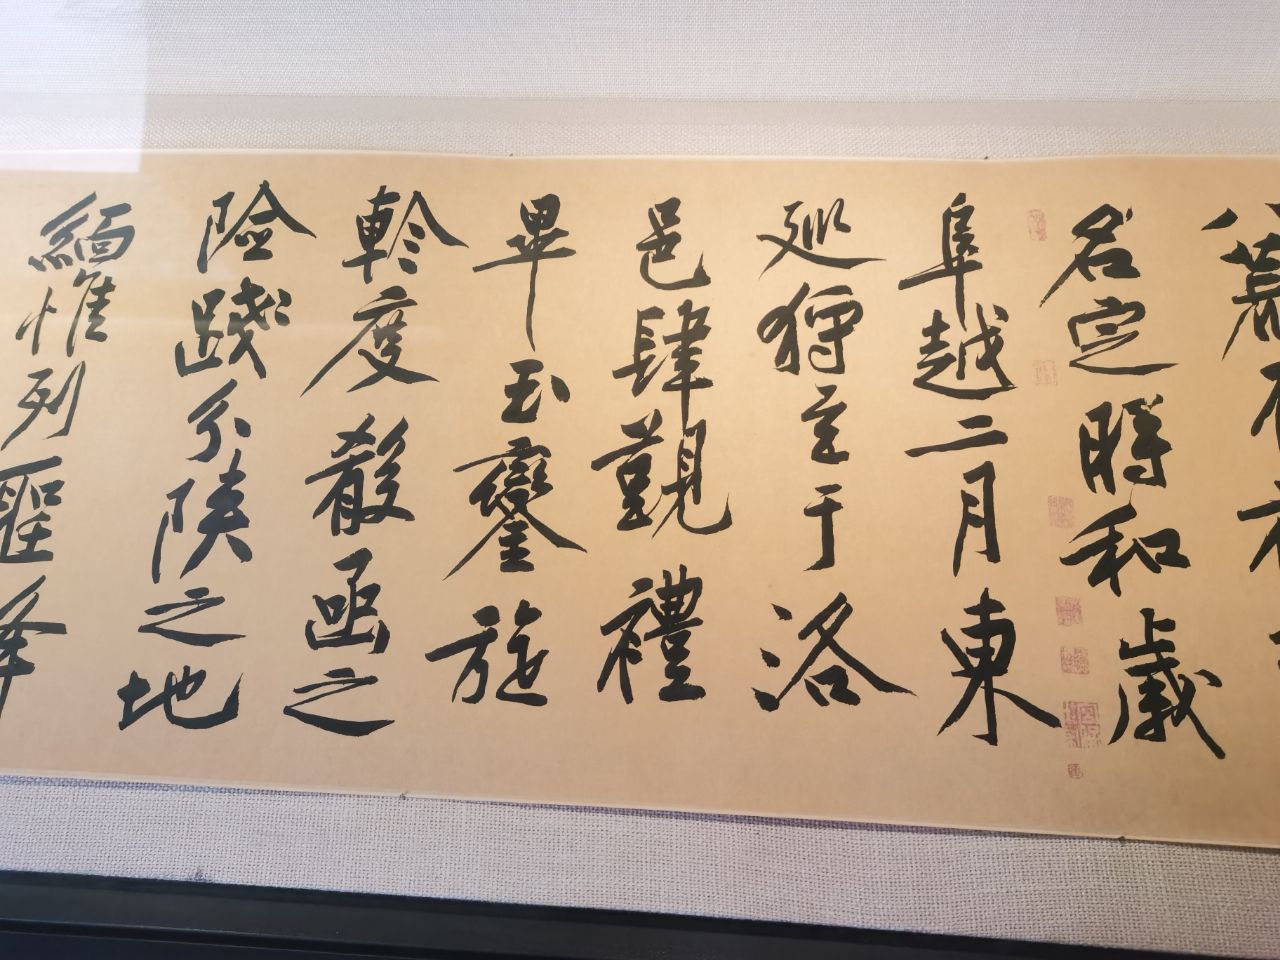 八荒
名定時和歲
阜越二月東
巡狩至于洛
邑肆覲禮
畢玉鑾旋
軫度殽函之
險踐分陝之地
緬惟列聖